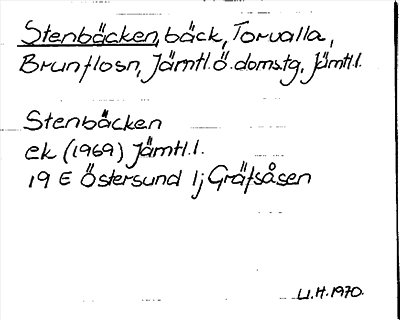 Stenbäcken, bäck, Torvalla,
Brunflosn, Jämtl. Ö. domstg, Jämtl.l.
Stenbäcken
ek (1969) Jämtl.l.
19 E Östersund 1j Gräfsåsen
U.H. 1970.